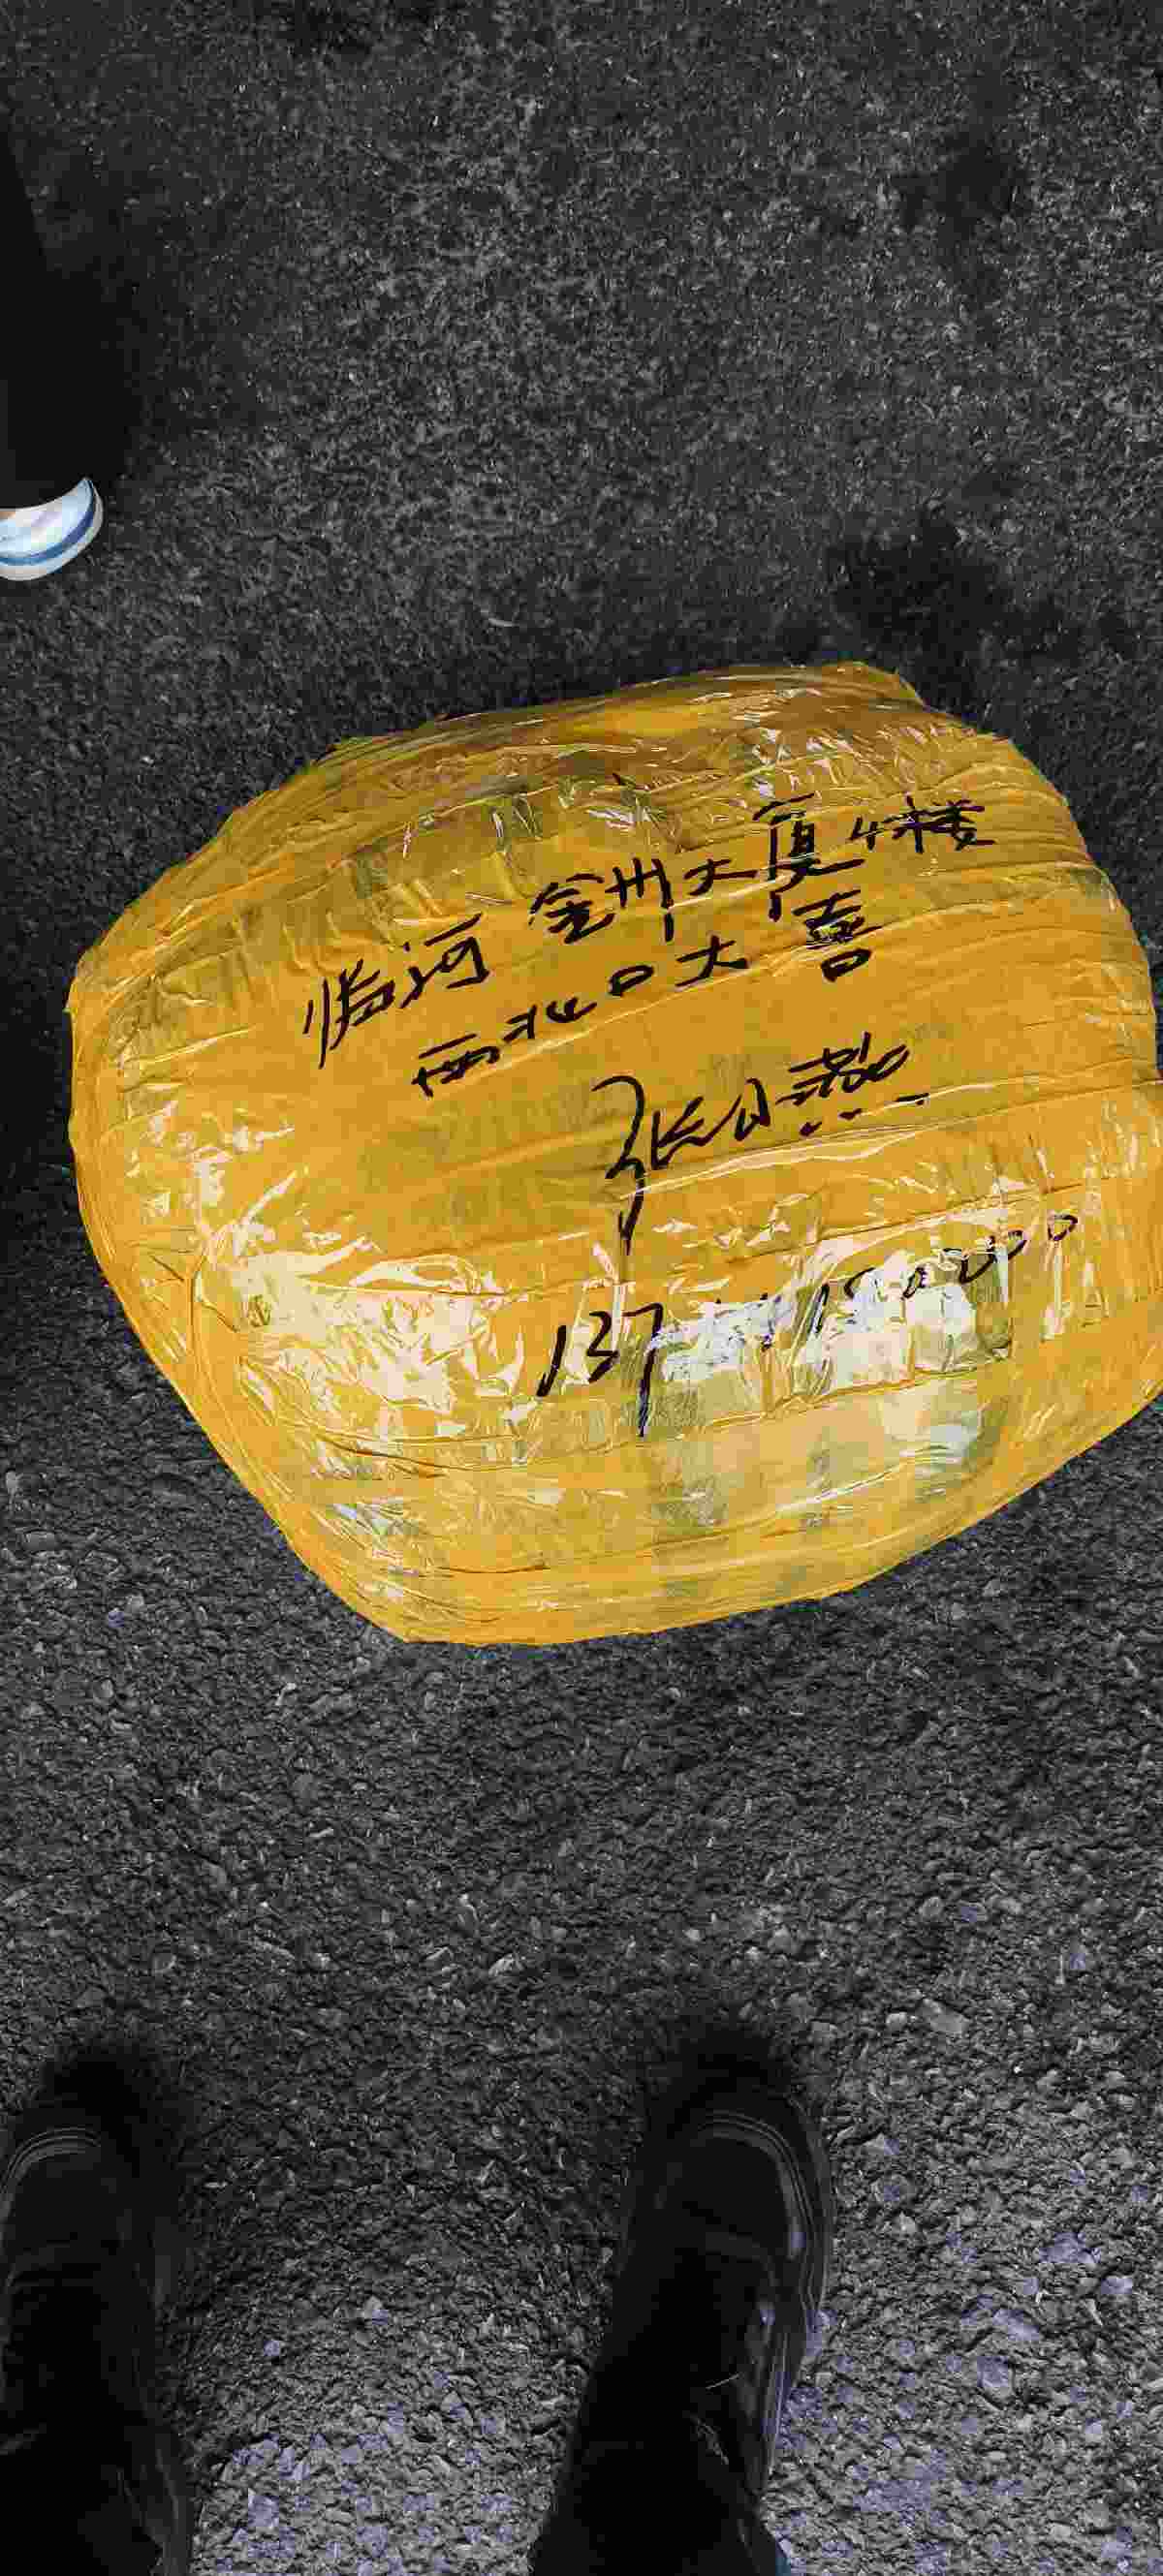 临河 金州大厦4楼
西北口大喜
张小燕
137